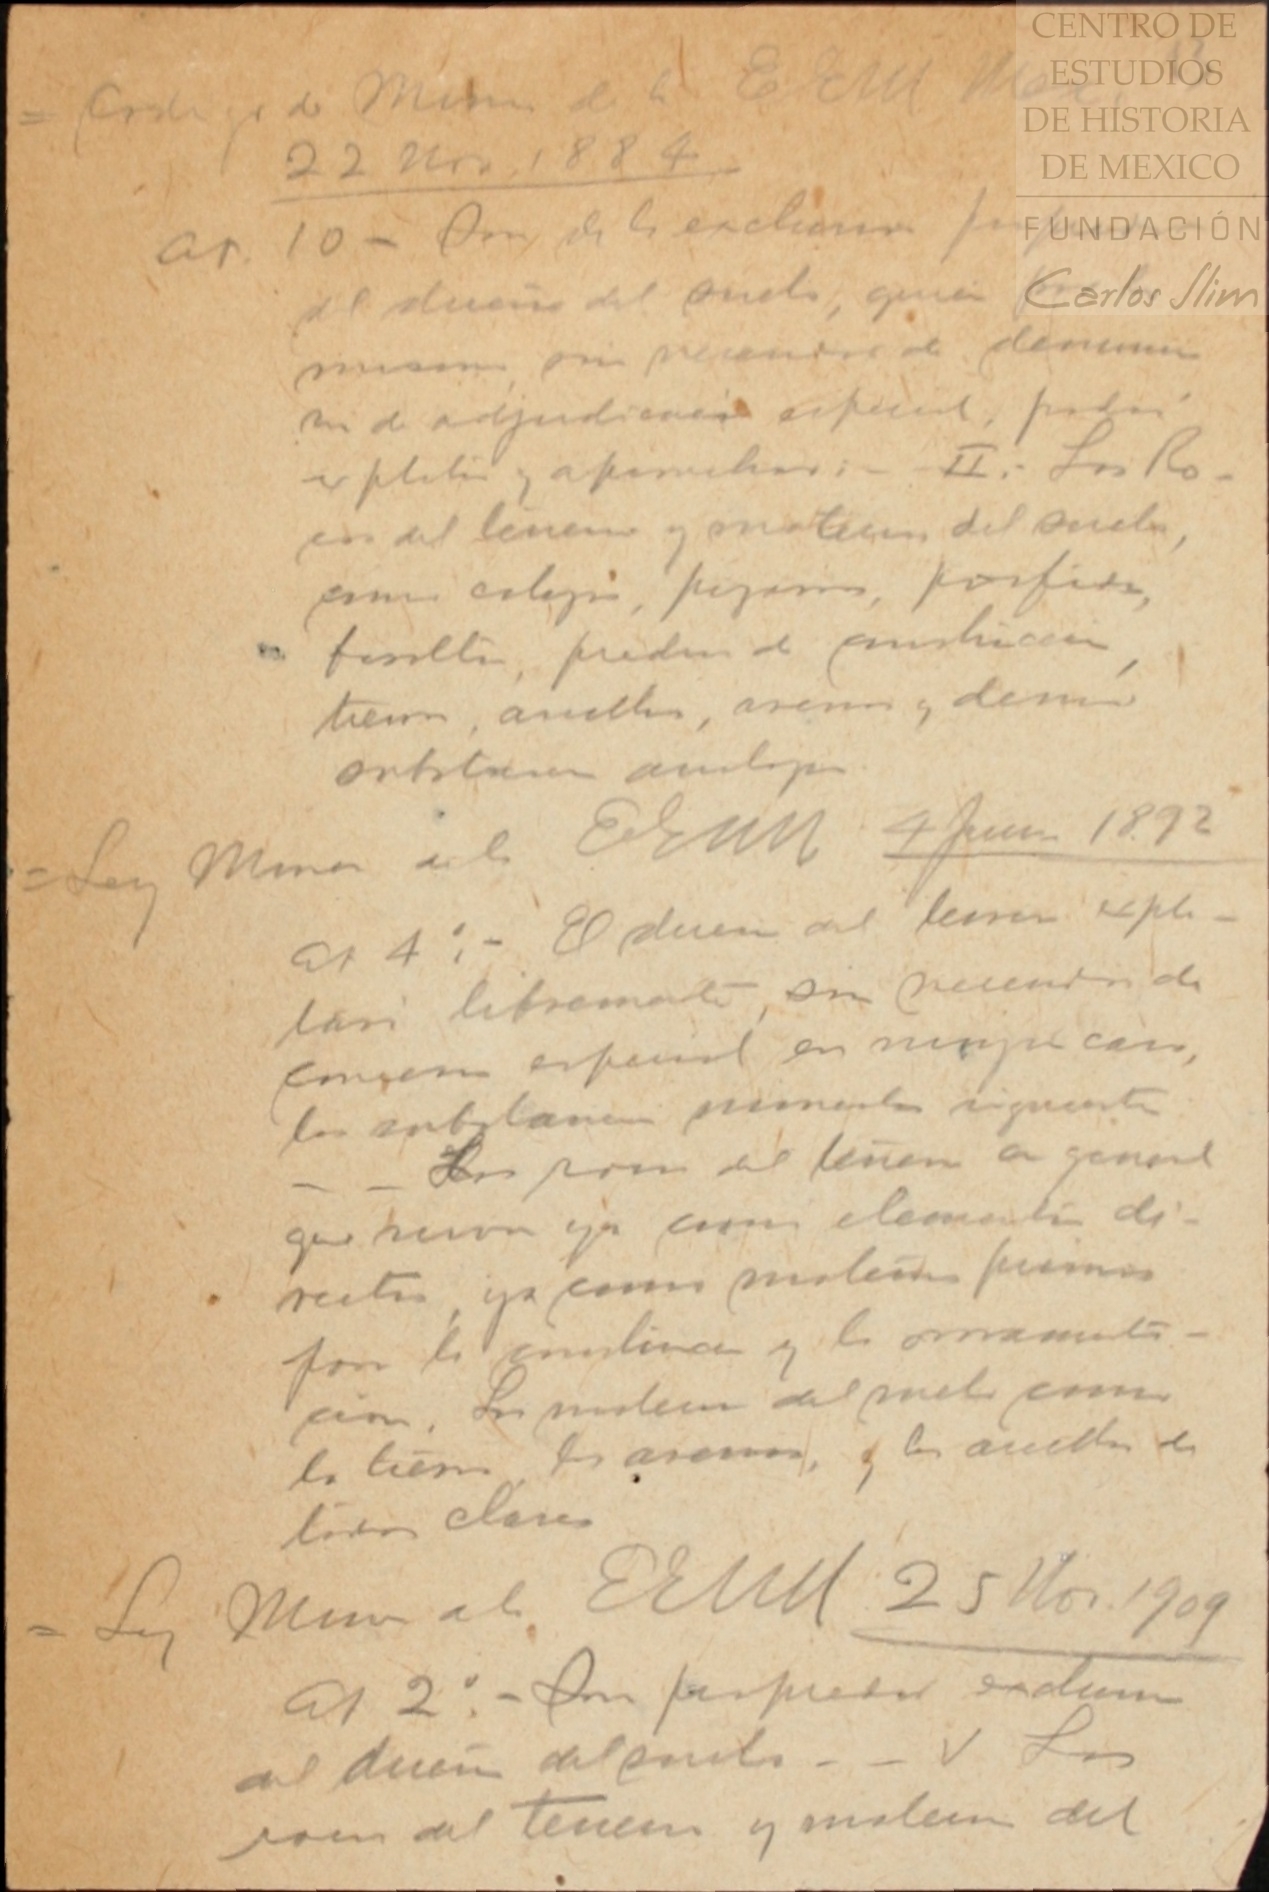 CENTRO DE
ESTUDIOS
DE HISTORIA
DE MEXICO
FUNDACIÓN
Carlos Slim
= Codigo de Minas de la EEUU Mex.
22 Nov. 1884
Art. 10 - Son de la exclusiva propiedad
del dueño del suelo, quien
mismo, sin necesidad de denuncio
ni de adjudicación especial, podrá
explotar y aprovechar: - - II. - Las Ro-
cas del terreno y materias del suelo,
como calizas, pizarras, porfidos,
basaltos, piedras de construcción,
tierras, arcillas, arenas y demás
substancias analogas.
= Ley Minera de los EEUU 4 Junio 1892
Art 4°. - El dueño del terreno explo-
tará libremente, sin necesidad de
concesión especial en ningún caso,
las substancias minerales siguientes
- - Las rocas del terreno en general
que sirvan ya como elementos di-
rectos, ya como materias primas
para la construcción y la ornamenta-
ción. Las materias del suelo como
las tierras, las arenas, y las arcillas de
todas clases
= Ley Minera de los EEUU 25 Nov. 1909
Art 2°. - Son propiedad exclusiva
del dueño del suelo - - V Las
rocas del terreno y materias del